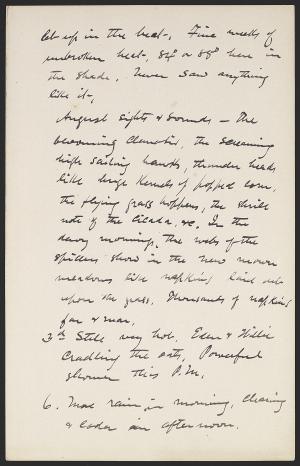 let up in the heat, Five weeks of
unbroken heat, 84° or 88° here in
the shade, Never saw anything
like it,
August sights & sounds — The
blooming Clematis, the screaming
high sailing hawks, thunder heads
like huge Kernels of popped corn,
the flying grass hoppers, the shrill
note of the Cicada, &c. In the
dewy mornings, the webs of the
spiders show in the new mown
meadows like napkins laid out
upon the grass, Thousands of napkins
far & near,
3d Still very hot. Eden & Willie
Cradling the oats, Powerful
shower this P.M.
6. More rain in morning, clearing
& cooler in afternoon.